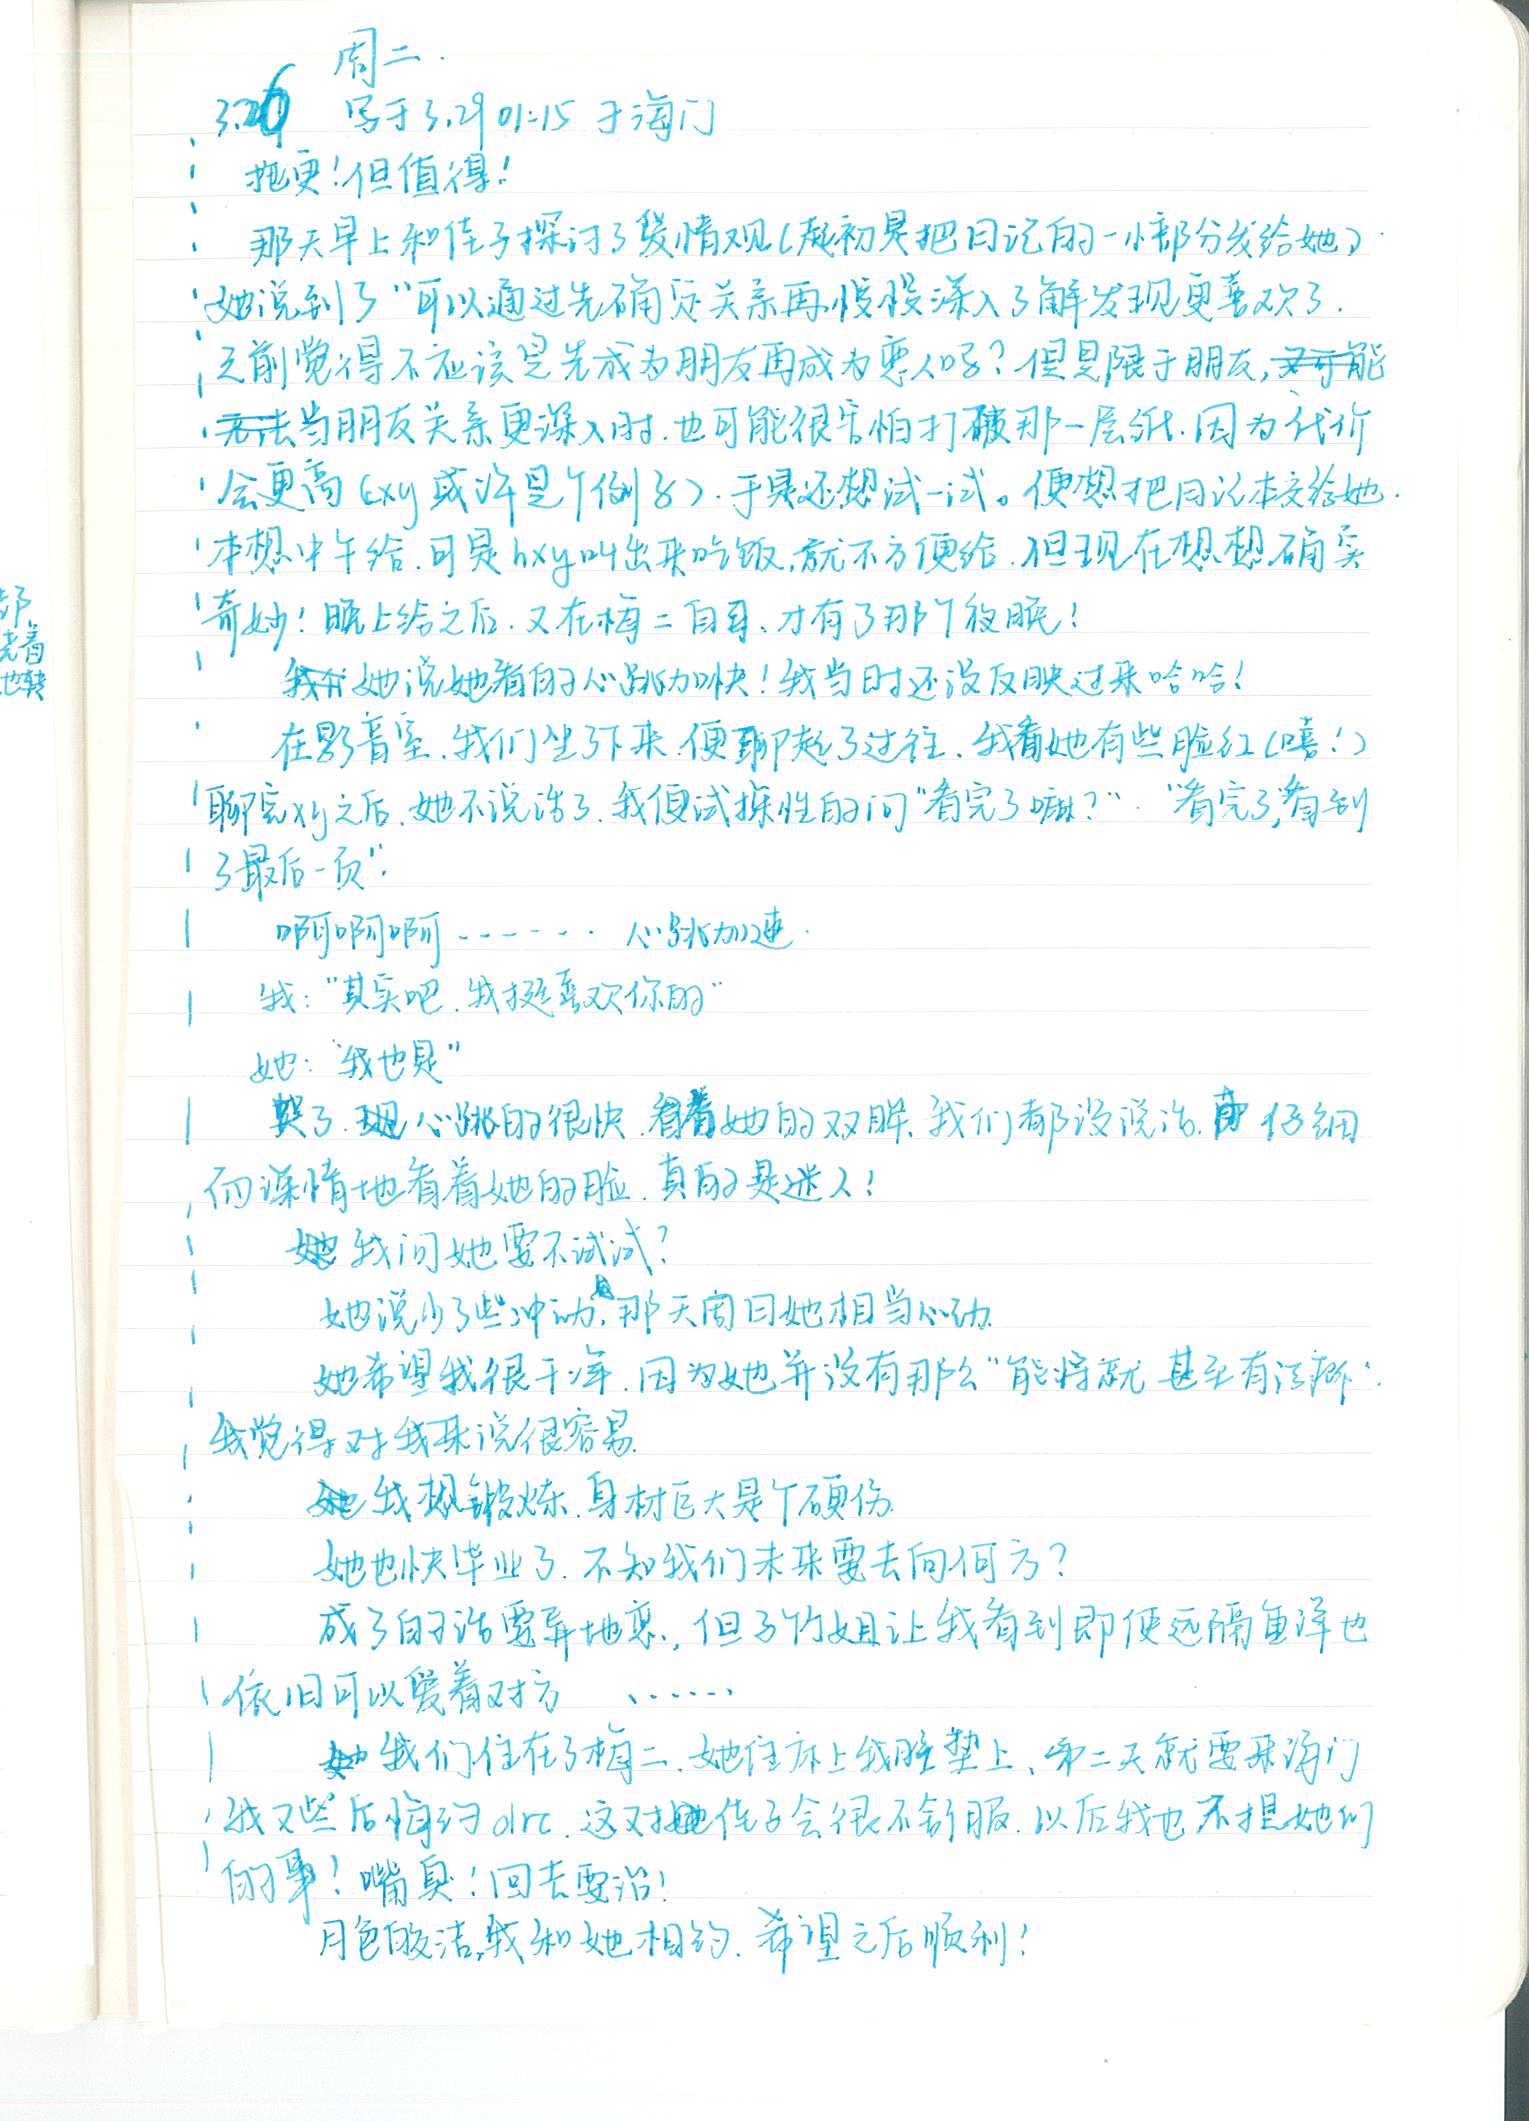 周二.
3.26 写于3.29 01:15 于海门
拖更!但值得!
那天早上和佳子探讨了爱情观(起初是把日记的一小部分发给她).
她说到了"可以通过先确定关系再慢慢深入了解发现更喜欢了.
之前觉得不应该是先成为朋友再成为恋人吗?但是限于朋友,
当朋友关系更深入时.也可能很害怕打破那一层纸.因为代价
会更高(xy或许是个例子).于是还想试一试。便想把日记本交给她.
本想中午给.可是hxy叫出来吃饭,就不方便给.但现在想想确实
奇妙!晚上给之后.又在梅二自习、才有了那个夜晚!
她说她看的心跳加快!我当时还没反映过来哈哈!
在影音室.我们坐了下来.便聊起了过往.我看她有些脸红(嘻!)
聊完xy之后.她不说话了.我便试探性的问"看完了嘛?"."看完了,看到
了最后一页".
啊啊啊------心跳加速.
我:"其实吧.我挺喜欢你的"
她:"我也是"
哭了.心跳的很快.看着她的双眸、我们都没说话.仔细
而深情地看着她的脸.真的是迷人!
我问她要不试试?
她说少了些冲动,那天周日她相当心动.
她希望我很干净.因为她并没有那么"能将就 甚至有洁癖".
我觉得对我来说很容易.
我想锻炼.身材巨大是个硬伤.
她也快毕业了.不知我们未来要去向何方?
成了的话要异地恋.,但子竹姐让我看到即便远隔重洋也
依旧可以爱着对方 ......
我们住在了梅二.她住床上我睡垫上、第二天就要来海门
我又些后悔约drc.这对佳子会很不舒服.以后我也不提她们
的事!嘴臭!回去要治!
月色皎洁,我和她相约.希望之后顺利!